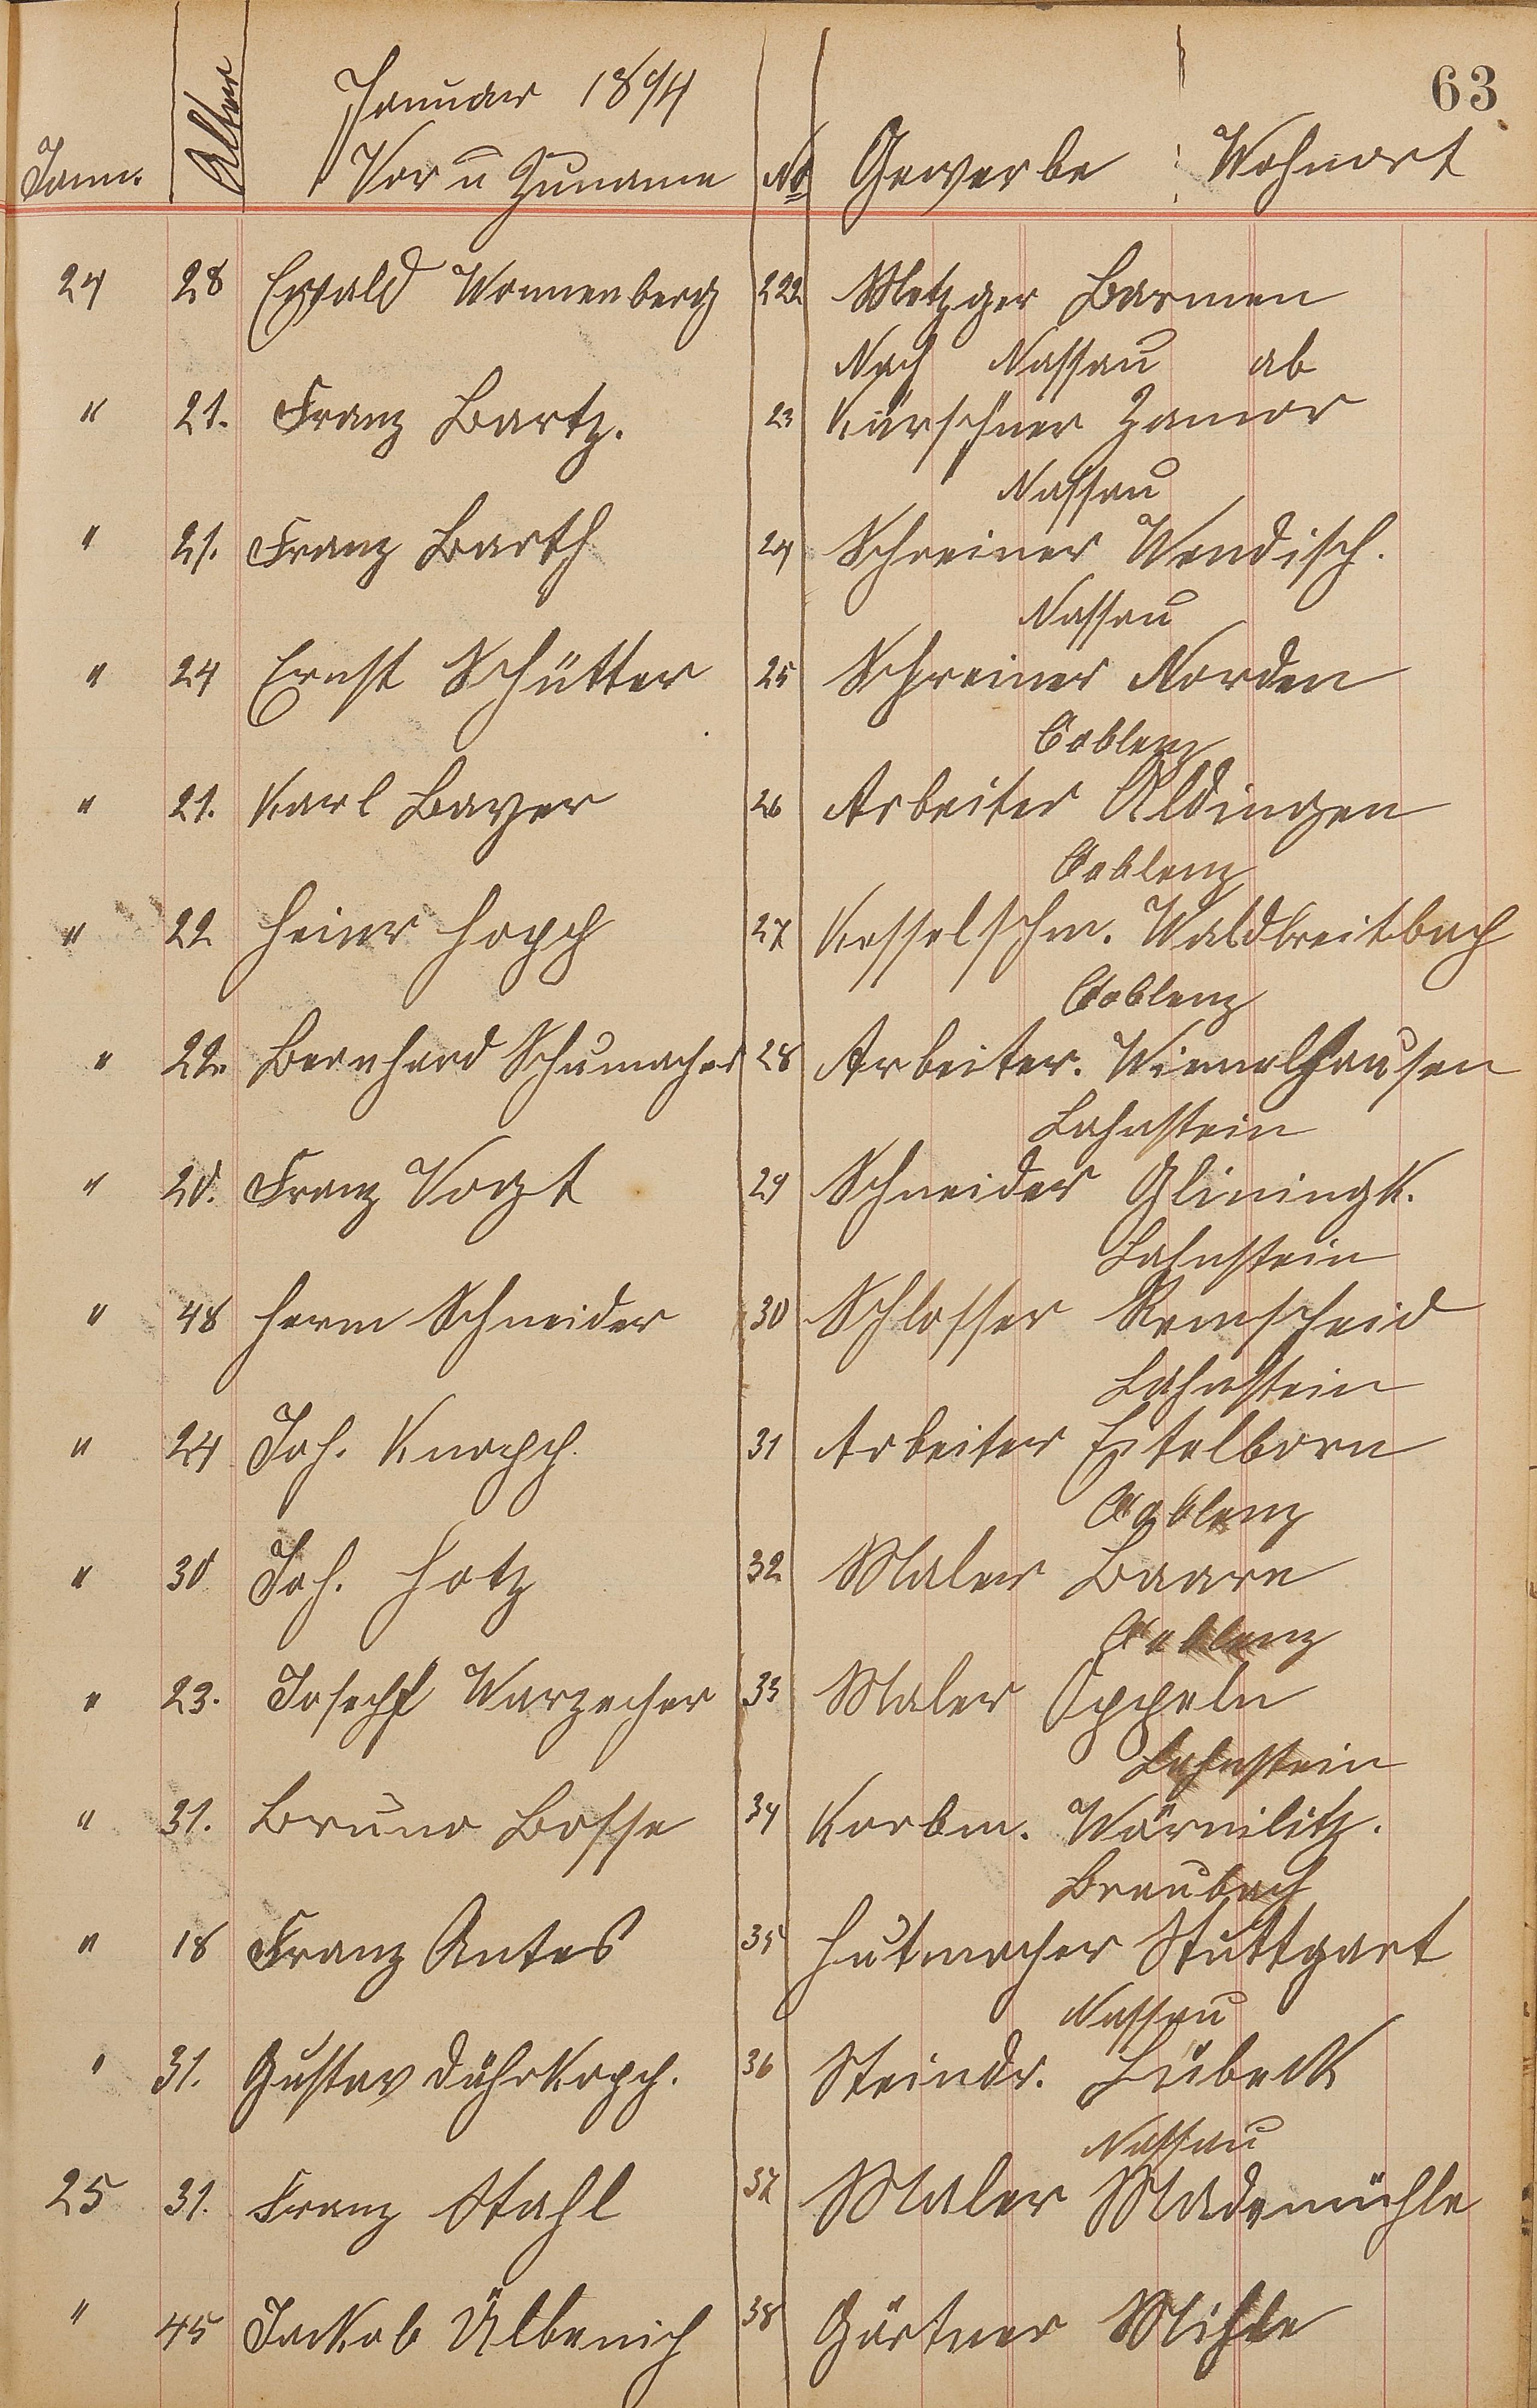 63
Januar 1894
Jann. Alter Vor u Zuname No Gewerbe Wohnort
24 28 Ewald Wonnenberg 222 Metzger Barmen
Nach Nassau ab
" 21. Franz Bartz. 23 Kürschner Zanor
Nassau
" 21. Franz Barth 24 Schreiner Wendisch.
Nassau
" 24 Ernst Schütter 25 Schreiner Norden
Coblenz
" 21. Karl Bayer 26 Arbeiter Aldingen
Coblenz
" 22 Heinr Hopp 27 Kesselschm. Waldbreitbach
Coblenz
" 22. Bernhard Schumacher 28 Arbeiter. Wiemelhausen
Lahnstein
" 20. Franz Vogt 29 Schneider
Lahnstein
" 48 Herm Schneider 30 Schlosser Remscheid
Lahnstein
" 24 Joh. Knopp. 31 Arbeiter Eitelborn
Coblenz
" 30 Joh. Hotz 32 Maler Baare
Coblenz
" 23. Joseph Warzecher 33 Maler Oppeln
Lahnstein
" 31. Bruno Bosse 34 Korbm. Wörmlitz.
Braubach
" 18 Franz Antes 35 Hutmacher Stuttgart
Nassau
" 31. Gustav Dührkopp. 36 Steindr. Lübeck
Nassau
25 31. Franz Stahl 37 Maler Mademühle
" 45 Jackob Ülbenich 38 Gärtner Mihle